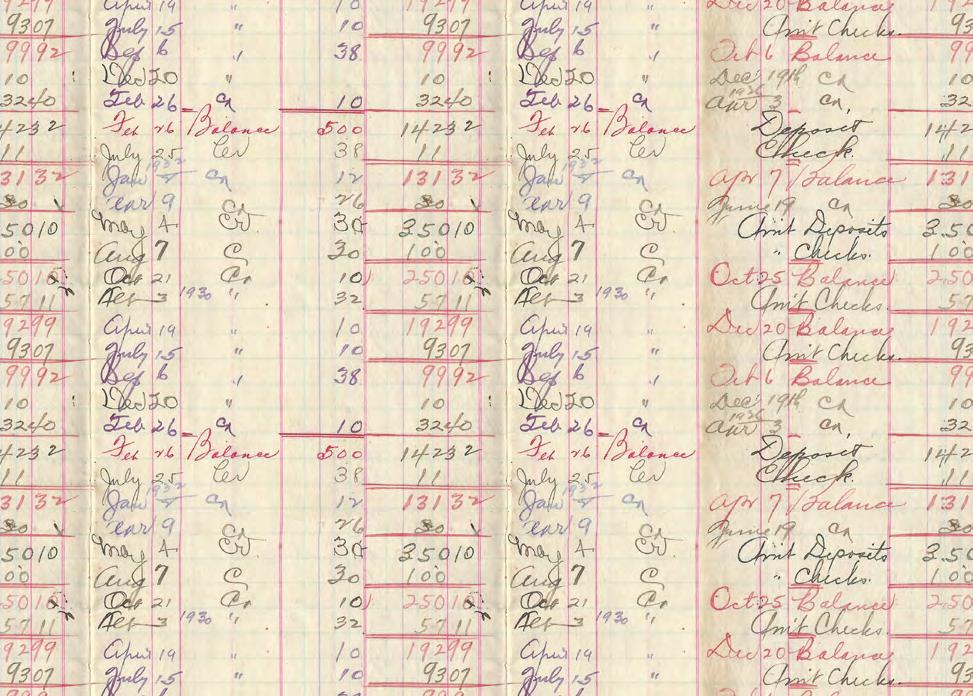 19299 April 19 " 10 19299 April 19 " Dec 20 Balance 192
9307 July 15 " 10 9307 July 15 " Am't Checks. 93
9992 Sep 6 " 38 9992 Sep 6 " Oct 6 Balance 99
10 Dec 20 " 10 Dec 20 " Dec 19th Cr 10
3240 Feb 26 Cr 10 3240 Feb 26 Cr Apr 3 Cr, 32
4232 Feb 26 Balance 500 14232 Feb 26 Balance Deposit 142
11 July 25 38 11 July 25 Check. 11
1932 1932
3132 Jan Cr 12 13132 Jan Cr Apr 7 Balance 131
9 26 9 June 19 Cr
5010 May 4 Cr 30 35010 May 4 Cr Am't Deposits 350
100 Aug 7 C 30 100 Aug 7 C " Checks. 100
5015 Oct 21 Cr 10 25015 Oct 21 Cr Oct 25 Balance 250
5711 3 1930 " 32 5711 3 1930 " Am't Checks. 57
9299 April 19 " 10 19299 April 19 " Dec 20 Balance 192
9307 July 15 " 10 9307 July 15 " Am't Checks. 93
9992 Sep 6 " 38 9992 Sep 6 " Oct 6 Balance 99
10 Dec 20 " 10 Dec 20 " Dec 19th Cr 10
3240 Feb 26 Cr 10 3240 Feb 26 Cr Apr 3 Cr, 32
4232 Feb 26 Balance 500 14232 Feb 26 Balance Deposit 142
11 July 25 38 11 July 25 Check. 11
1932 1932
3132 Jan Cr 12 13132 Jan Cr Apr 7 Balance 131
9 26 9 June 19 Cr
5010 May 4 Cr 30 35010 May 4 Cr Am't Deposits 350
100 Aug 7 C 30 100 Aug 7 C " Checks. 100
5015 Oct 21 Cr 10 25015 Oct 21 Cr Oct 25 Balance 250
5711 3 1930 " 32 5711 3 1930 " Am't Checks. 57
9299 April 19 " 10 19299 April 19 " Dec 20 Balance 192
9307 July 15 " 10 9307 July 15 " Am't Checks. 93